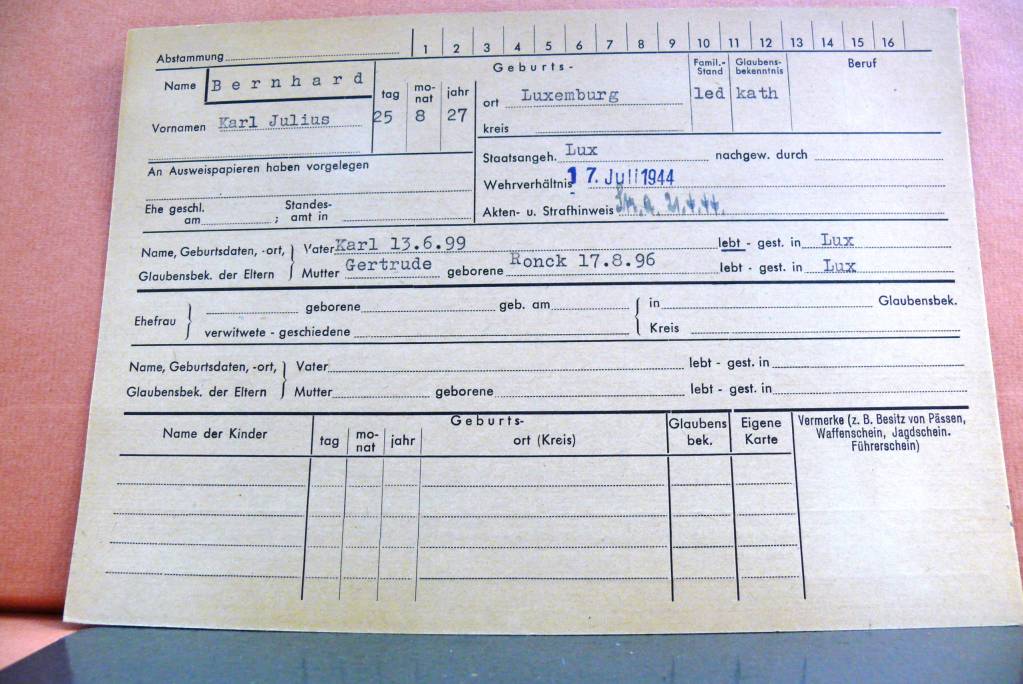 Abstammung 1 2 3 4 5 6 7 8 9 10 11 12 13 14 15 16
Name Bernhard
Vornamen Karl Julius
tag monat jahr
25 8 27
Geburts-
ort Luxemburg
kreis
Famil.-Stand
led
Glaubens-bekenntnis
kath
Beruf
An Ausweispapieren haben vorgelegen
Ehe geschl. am ; Standes-amt in
Staatsangeh. Lux nachgew. durch
Wehrverhältnis 17. Juli 1944
Akten- u. Strafhinweis 21.4.44.
Name, Geburtsdaten, -ort, Vater Karl 13.6.99 lebt - gest. in Lux
Glaubensbek. der Eltern Mutter Gertrude geborene Ronck 17.8.96 lebt - gest. in Lux
Ehefrau geborene geb. am in Glaubensbek.
verwitwete - geschiedene Kreis
Name, Geburtsdaten, -ort, Vater lebt - gest. in
Glaubensbek. der Eltern Mutter geborene lebt - gest. in
Name der Kinder
Geburts-
tag mo-nat jahr ort (Kreis)
Glaubens bek.
Eigene Karte
Vermerke (z. B. Besitz von Pässen,
Waffenschein, Jagdschein.
Führerschein)